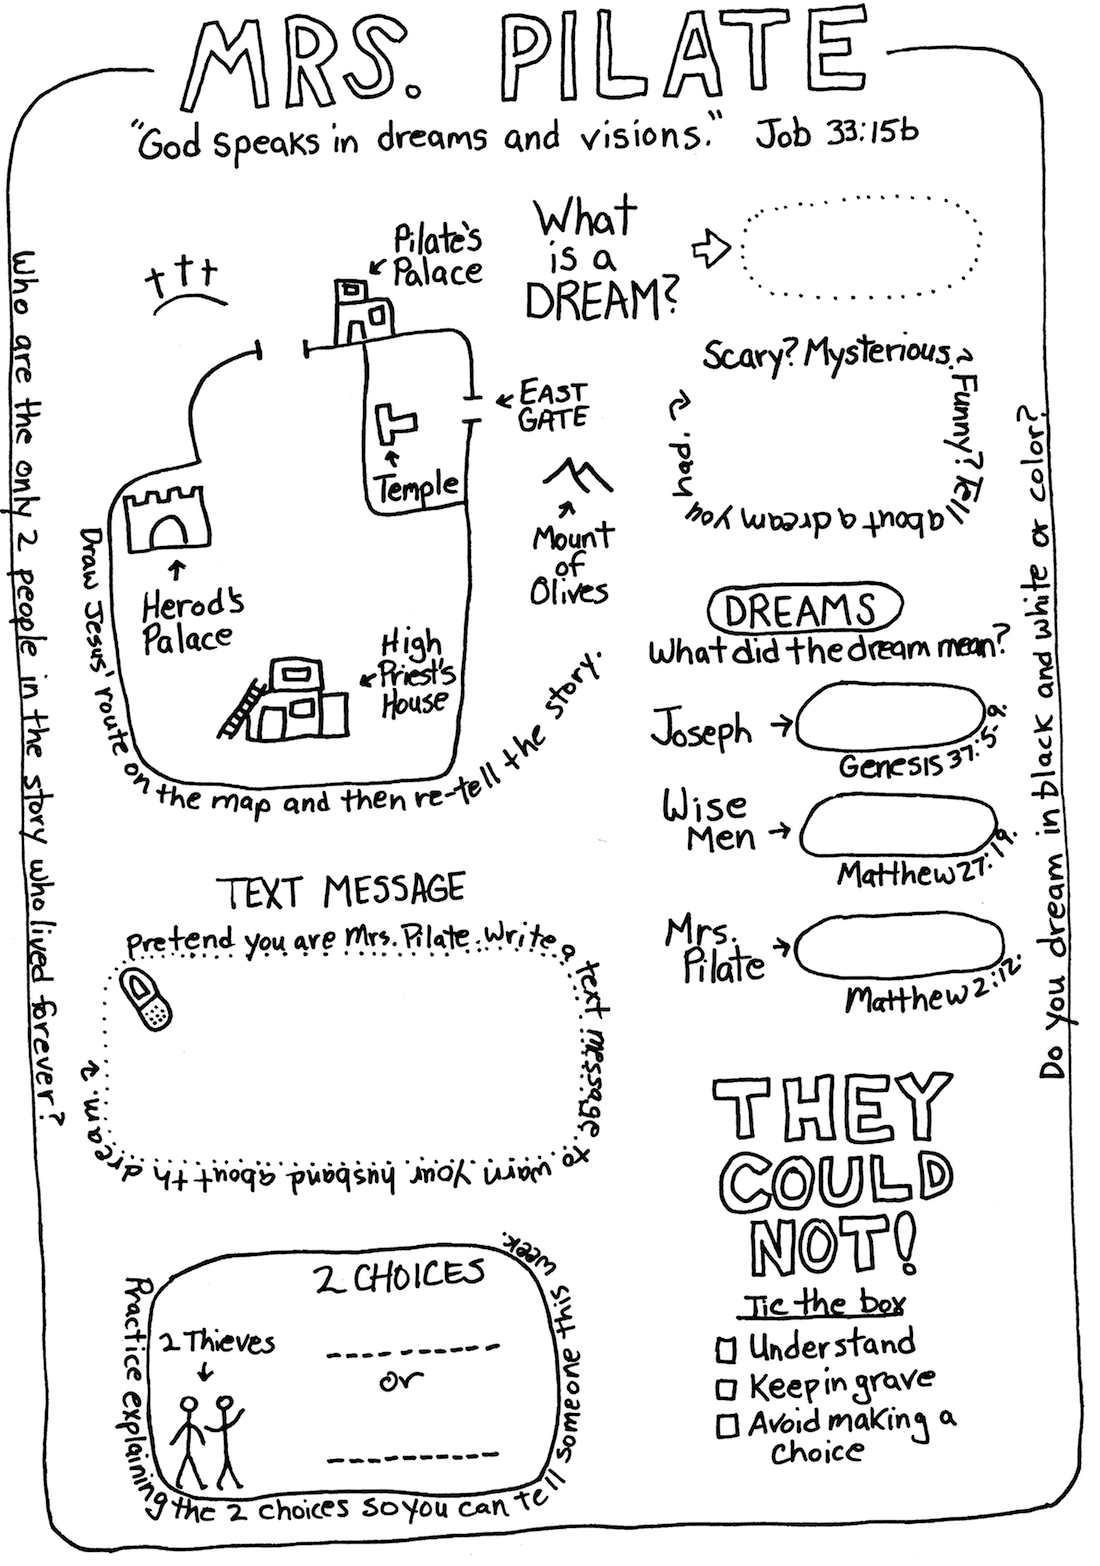 MRS. PILATE
"God speaks in dreams and visions." Job 33:15b
Who are the only 2 people in the story who lived forever?
Pilate's
Palace
EAST
GATE
Temple
Mount
of
Olives
Herod's
Palace
High
Priest's
House
Draw Jesus' route on the map and then re-tell the story.
What
is a
DREAM?
Scary? Mysterious? Funny? Tell about a dream you had.
DREAMS
What did the dream mean?
Joseph
Genesis 37:5-9.
Wise
Men
Matthew 27:19.
Mrs.
Pilate
Matthew 2:12.
Do you dream in black and white or color?
TEXT MESSAGE
Pretend you are Mrs. Pilate. Write a text message to warn your husband about th dream.
THEY
COULD
NOT!
Tic the box
Understand
Keep in grave
Avoid making a
choice
2 CHOICES
2 Thieves
or
Practice explaining the 2 choices so you can tell someone this week.